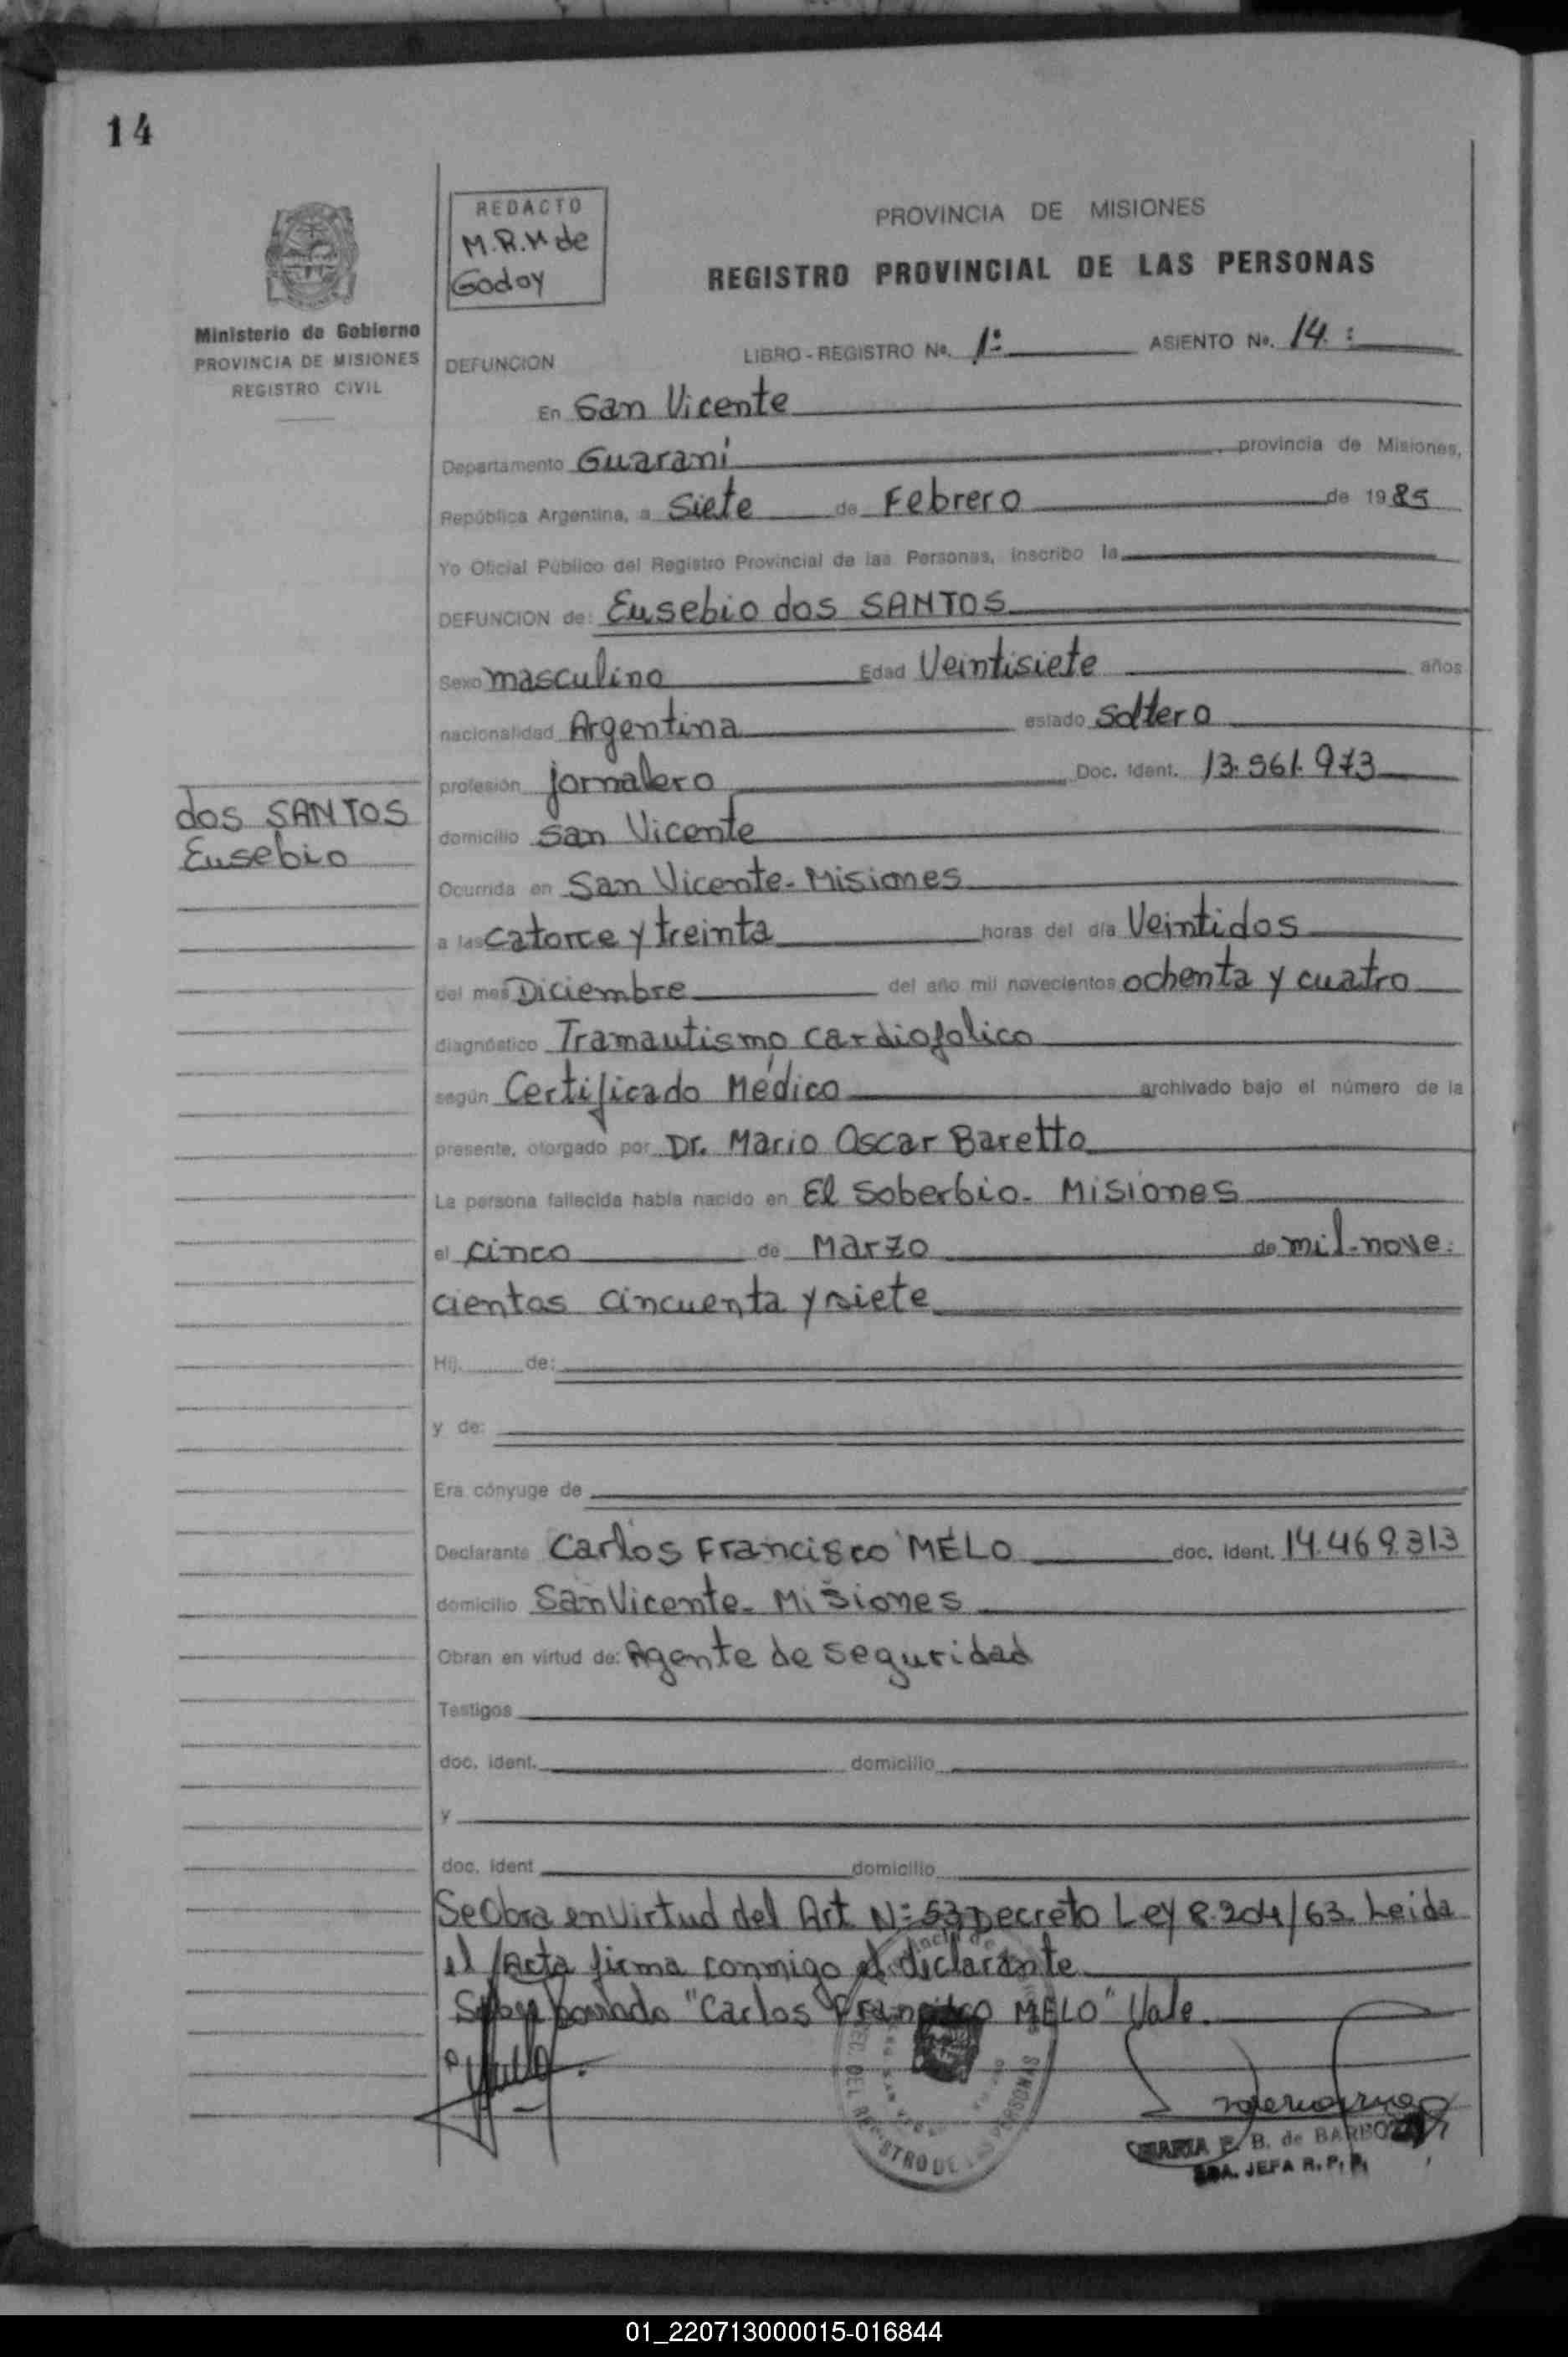 14
REDACTO
M.R.M de
Godoy
PROVINCIA DE MISIONES
REGISTRO PROVINCIAL DE LAS PERSONAS
Ministerio de Gobierno
PROVINCIA DE MISIONES
REGISTRO CIVIL
DEFUNCION LIBRO - REGISTRO Nº. 1º ASIENTO Nº. 14:
En San Vicente
Departamento Guaraní, provincia de Misiones,
República Argentina, a Siete de Febrero de 1985
Yo Oficial Público del Registro Provincial de las Personas, inscribo la
DEFUNCION de: Eusebio dos SANTOS
Sexo masculino Edad Veintisiete años
nacionalidad Argentina estado soltero
profesión jornalero Doc. Ident. 13.561.973
dos SANTOS
Eusebio
domicilio San Vicente
Ocurrida en San Vicente - Misiones
a las catorce y treinta horas del día Veintidos
del mes Diciembre del año mil novecientos ochenta y cuatro
diagnóstico Tramautismo cardiofolico
según Certificado Médico archivado bajo el número de la
presente, otorgado por Dr. Mario Oscar Baretto
La persona fallecida había nacido en El Soberbio - Misiones
el cinco de Marzo de mil nove-
cientos cincuenta y siete
Hij. de:
y de:
Era cónyuge de
Declarante Carlos Francisco MELO doc. Ident. 14.469.313
domicilio San Vicente - Misiones
Obran en virtud de: Agente de seguridad
Testigos
doc. ident. domicilio
y
doc. ident domicilio
Se Obra en Virtud del Art Nº 53 Decreto Ley 8.204/63. Leida
el Acta firma conmigo el declarante
Sobre borrado "Carlos Francisco MELO" Vale.
MARIA E. B. de BARBOZA
SRA. JEFA R. P. P.
01_220713000015-016844